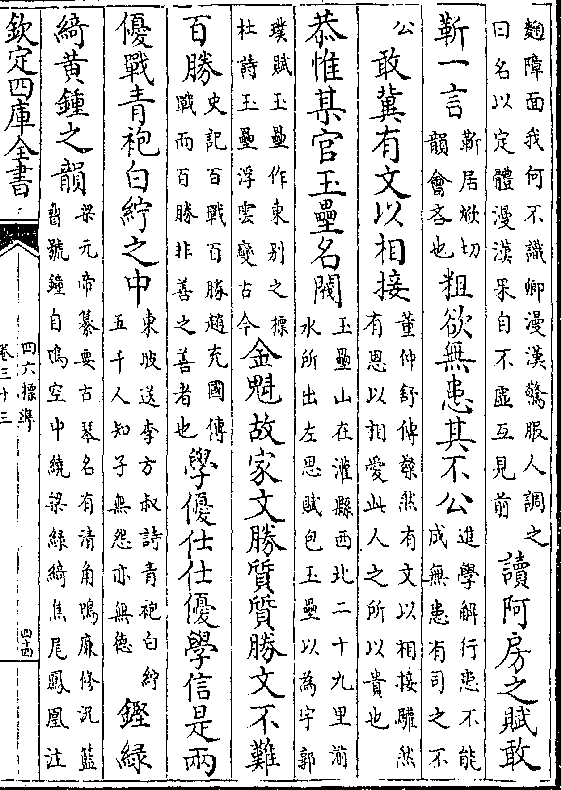 麴障面我何不識卿漫漢驚服人謂之
曰名以定體漫漢果自不虛互見前
讀阿房之賦敢
靳一言
靳居焮切
韻會吝也
粗欲無患其不公
進學解行患不能
成無患有司之不
公
敢冀有文以相接
董仲舒傳粲然有文以相接驩然
有恩以相愛此人之所以貴也
恭惟某官玉壘名閥
玉壘山在灌縣西北二十九里湔
水所出左思賦包玉壘以為宇郭
璞賦玉壘作東别之標
杜詩玉壘浮雲變古今
金魁故家文勝質質勝文不難
百勝
史記百戰百勝趙充國傳
戰而百勝非善之善者也
學優仕仕優學信是兩
優戰青袍白紵之中
東坡送李方叔詩青袍白紵
五千人知子無怨亦無德
鏗綠
綺黃鍾之韻
梁元帝纂要古琴名有清角鳴廉修況籃
脅號鐘自鳴空中繞梁綠綺焦尾鳳凰注
欽定四庫全書
四六標準
卷三十三
四十四